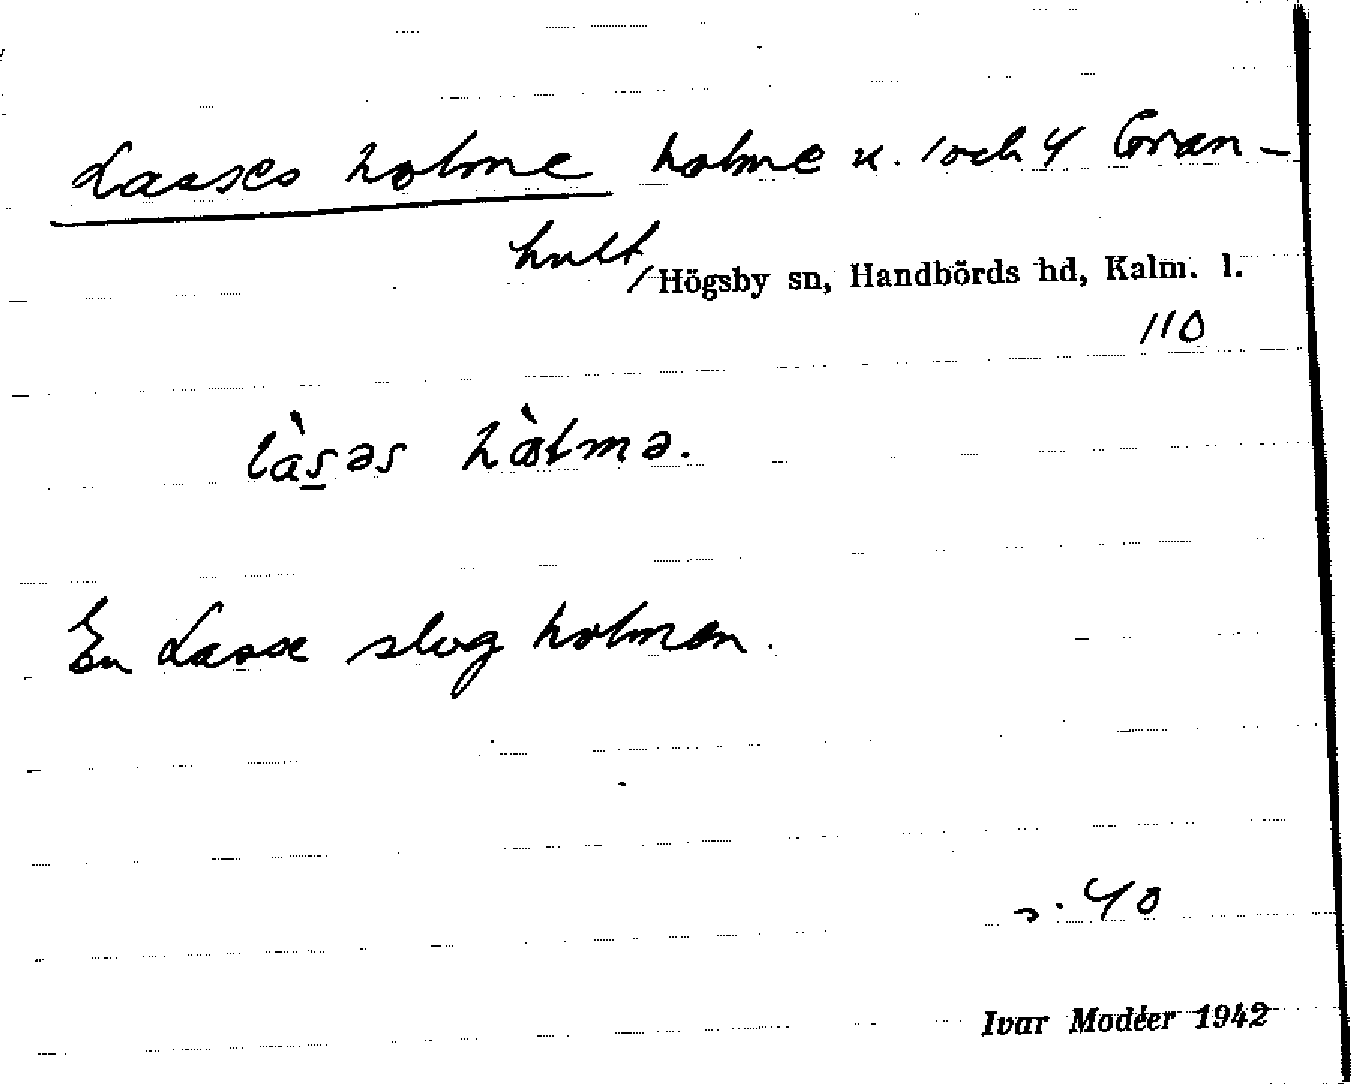 Lasses holme holme u. 1 och 4 Gran-
hult
/Högsby sn, Handbörds hd, Kalm. l.
110
làs̲əs hòlmə.
En Lasse slog holmen.
s. 40
Ivar Modéer 1942